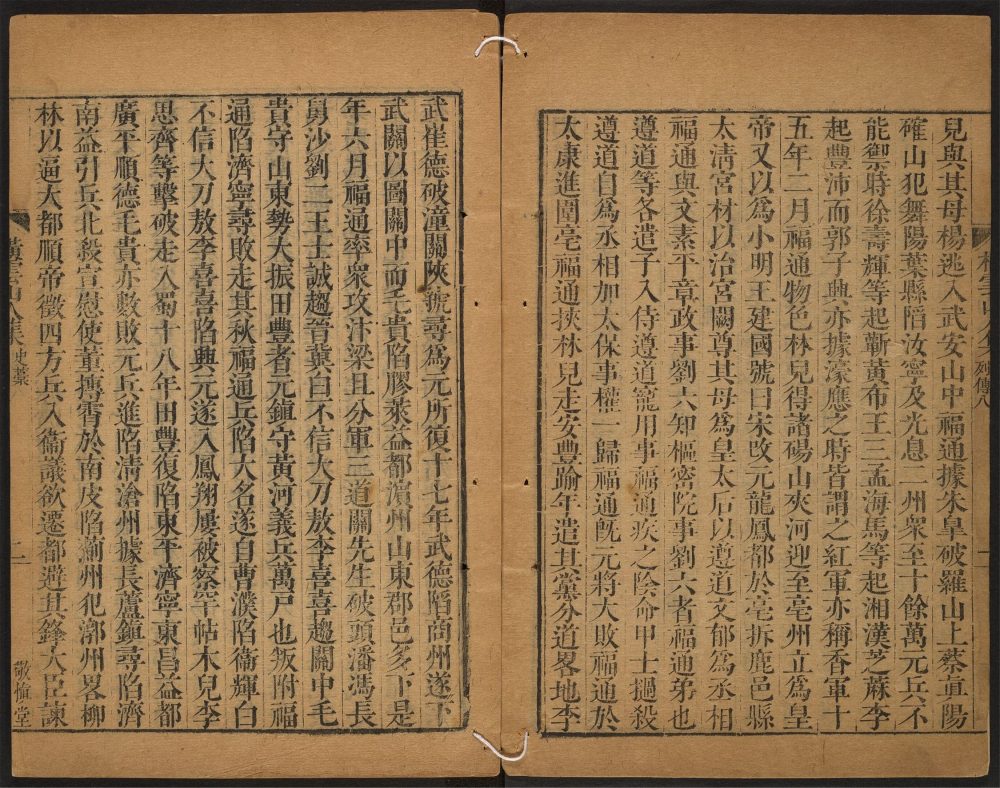 兒與其母楊逃入武安山中福通據朱臯破羅山上蔡眞陽
確山犯舞陽葉縣䧟汝寧及光息二州衆至十餘萬元兵不
能禦時徐壽輝等起蘄黃布王三孟海馬等起湘漢芝蔴李
起豐沛而郭子興亦據濠應之時皆謂之紅軍亦稱香軍十
五年二月福通物色林兒得諸碭山夾河迎至亳州立爲皇
帝又以爲小明王建國號曰宋改元龍鳳都於亳拆鹿邑縣
太淸宮材以治宮闕尊其母爲皇太后以遵道文郁爲丞相
福通與文素平章政事劉六知樞密院事劉六者福通弟也
遵道等各遣子入侍遵道寵用事福通疾之陰命甲士撾殺
遵道自爲丞相加太保事權一歸福通旣元將大敗福通於
太康進圍亳福通挾林兒走安豐踰年遣其黨分道畧地李
列傳八
一
武崔德破潼關陜虢尋爲元所復十七年武德䧟商州遂下
武關以圖關中而毛貴陷膠萊益都濵州山東郡邑多下是
年六月福通率衆攻汴梁且分軍三道關先生破頭潘馮長
舅沙劉二王士誠趨晉冀白不信大刀敖李喜喜趨關中毛
貴守山東勢大振田豐者元鎭守黃河義兵萬戸也叛附福
通陷濟寧尋敗走其秋福通兵陷大名遂自曹濮陷衞輝白
不信大刀敖李喜喜陷興元遂入鳳翔屢被察罕帖木兒李
思齊等擊破走入蜀十八年田豐復陷東平濟寧東昌益都
廣平順德毛貴亦數敗元兵進陷淸滄州據長蘆鎭尋陷濟
南益引兵北殺宣慰使董摶霄於南皮陷薊州犯漷州畧柳
林以逼大都順帝徵四方兵入衞議欲遷都避其鋒大臣諫
史藁
二
敬愼堂